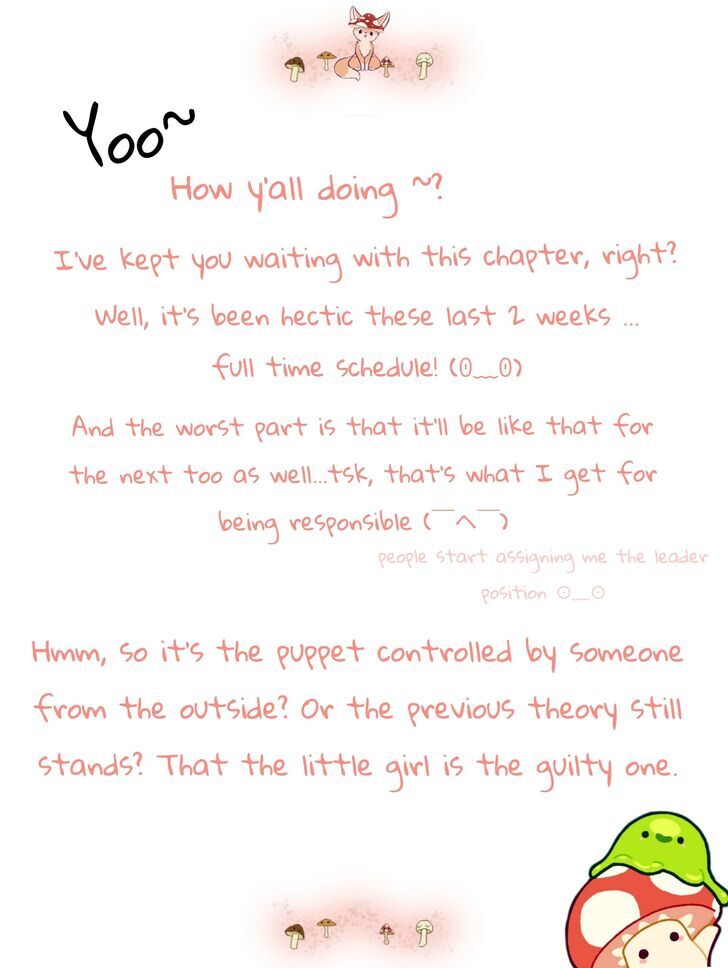 Yoo~
How y'all doing ~?
I've kept you waiting with this chapter, right?
Well, it's been hectic these last 2 weeks ...
full time schedule! (ʘ‿ʘ)
And the worst part is that it'll be like that for
the next too as well...tsk, that's what I get for
being responsible (￣ヘ￣)
people start assigning me the leader
position ʘ‿ʘ
Hmm, so it's the puppet controlled by someone
from the outside? Or the previous theory still
stands? That the little girl is the guilty one.